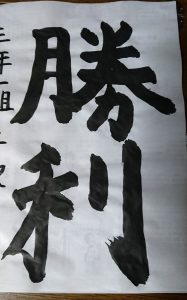 勝利
三年一組